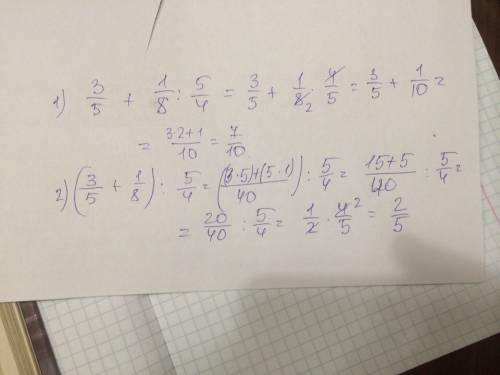 1) 3/5 + 1/8 : 5/4 = 3/5 + 1/8₂ · 4/5 = 3/5 + 1/10 =
= 3·2+1/10 = 7/10
2) (3/5 + 1/8) : 5/4 = ((3·5)+(5·1)/40) : 5/4 = 15+5/40 : 5/4 =
= 20/40 : 5/4 = 1/2 · 4²/5 = 2/5